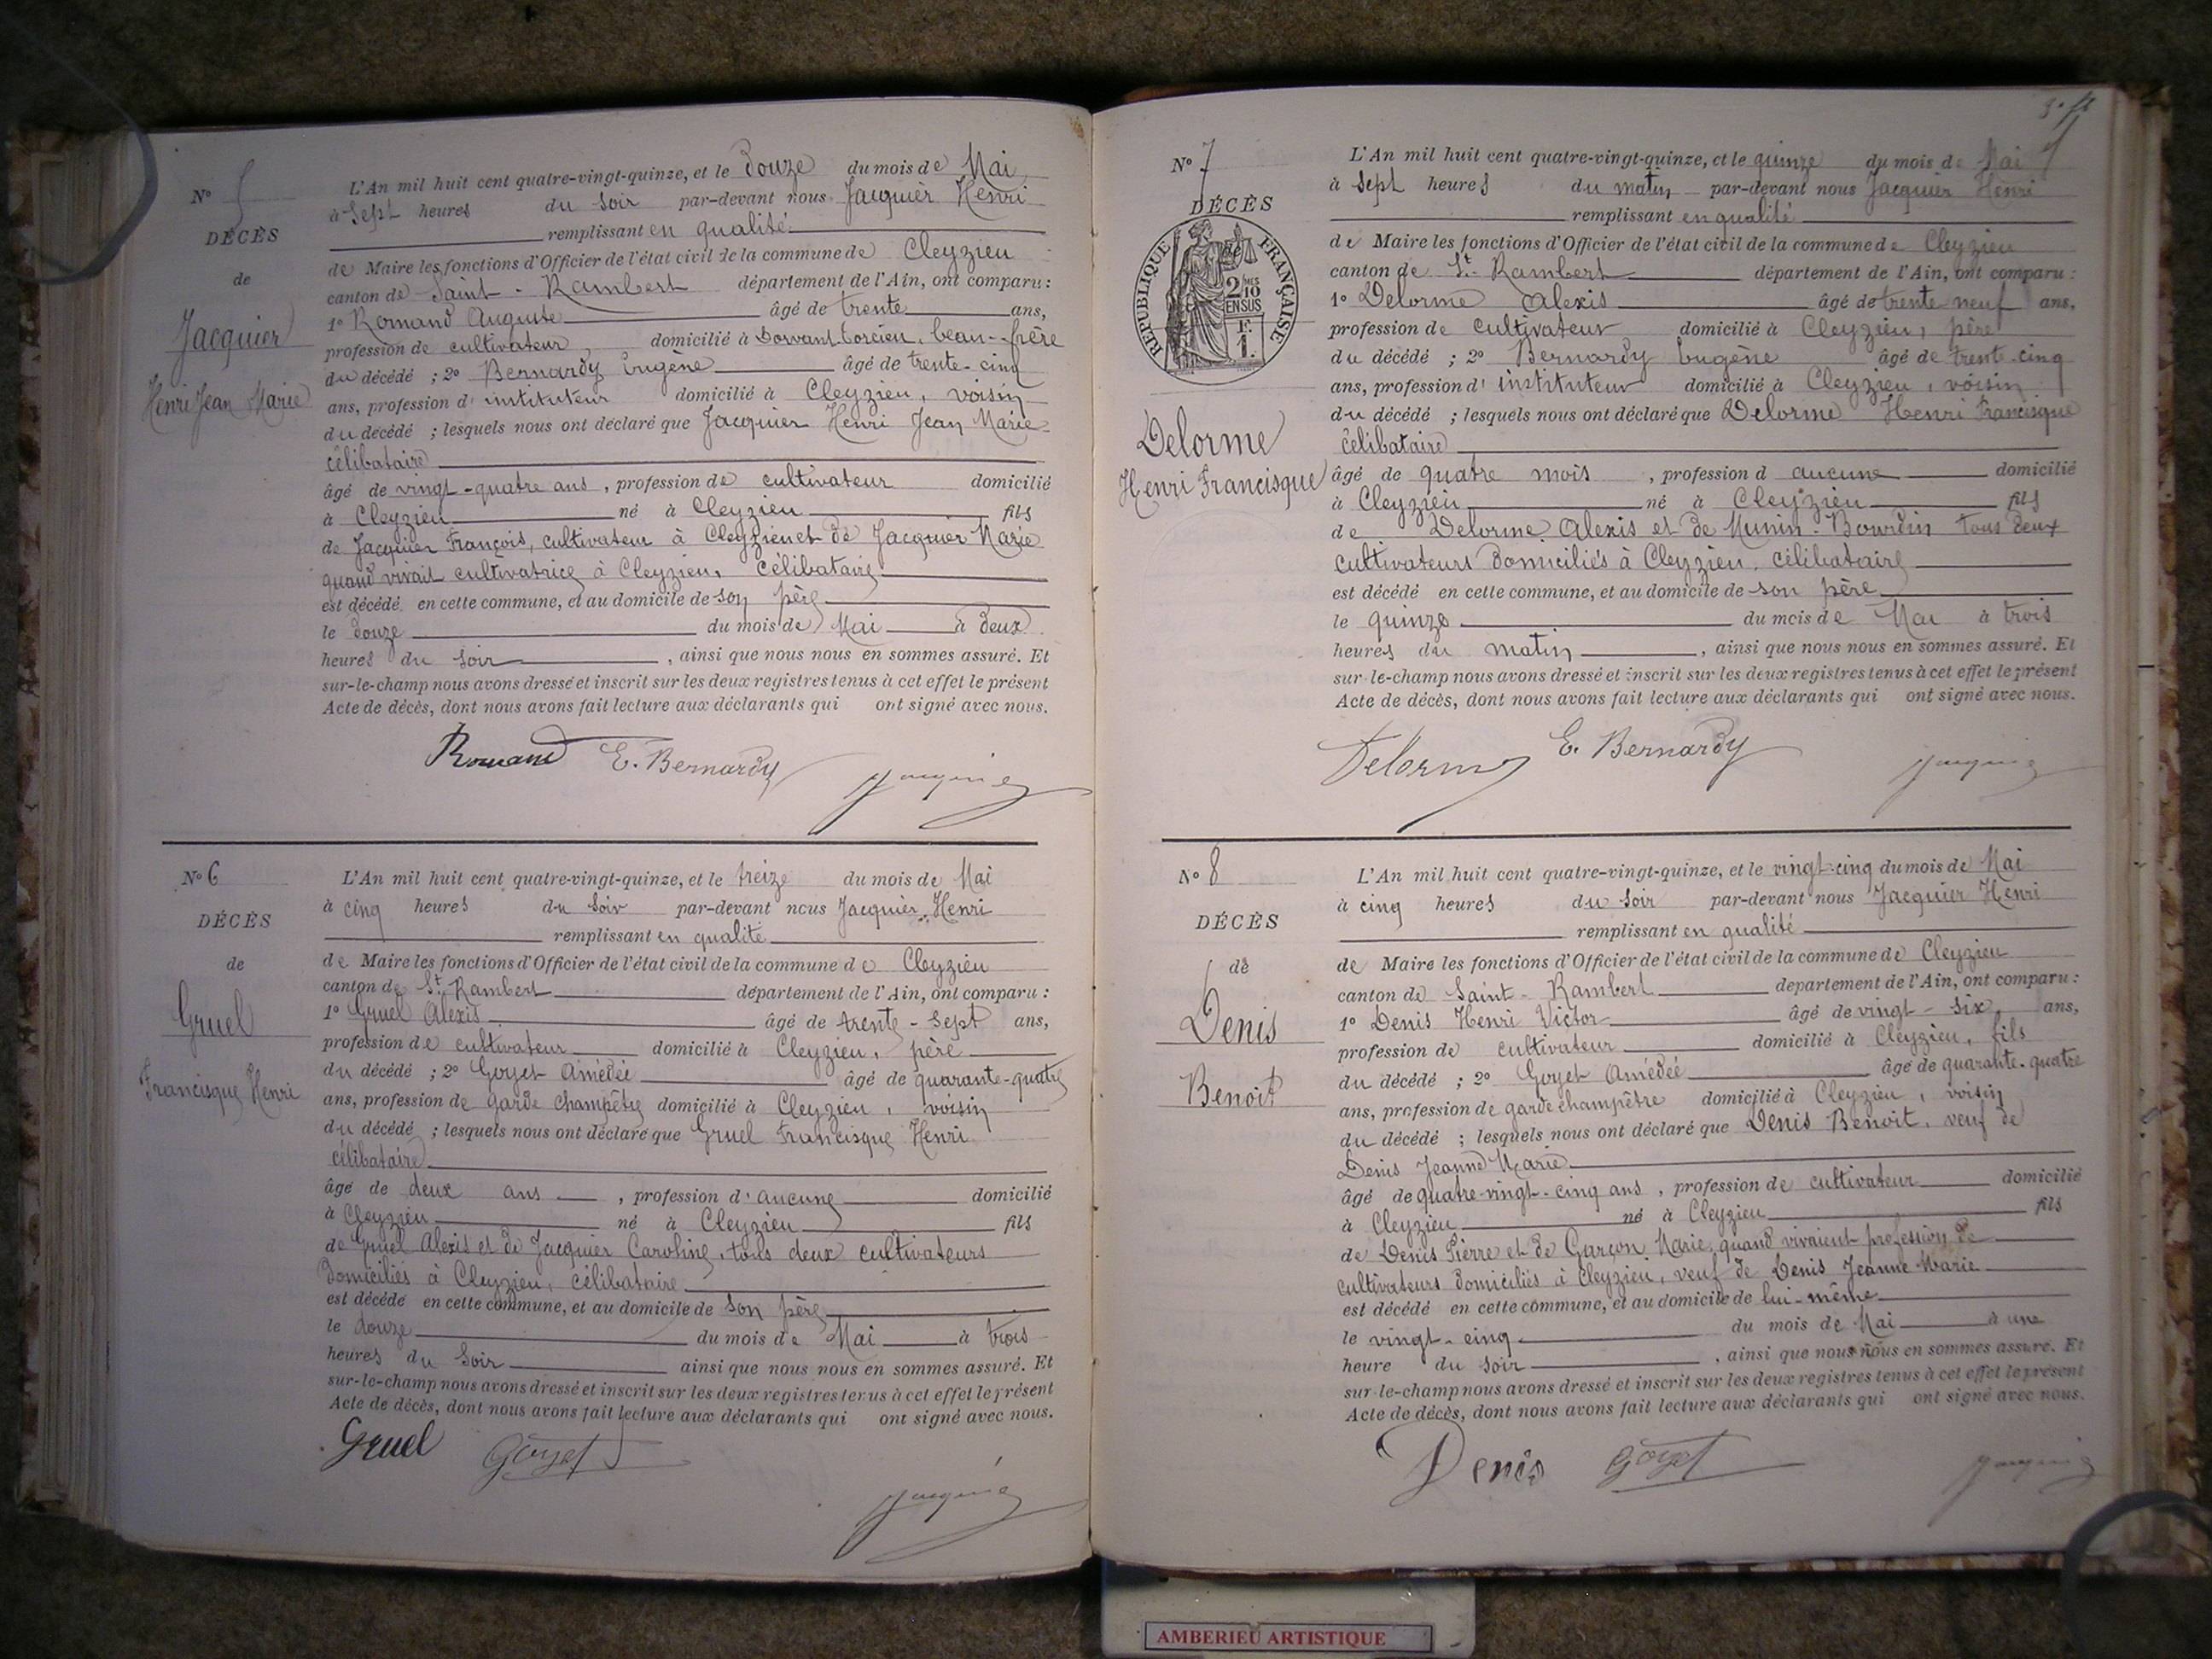 N° 5
DÉCÈS
de
Jacquier
Henri Jean Marie
L'An mil huit cent quatre-vingt-quinze, et le douze du mois de Mai
à sept heures du soir par-devant nous Jacquier Henri
remplissant en qualité
de Maire les fonctions d'Officier de l'état civil de la commune de Cleyzieu
canton de Saint-Rambert département de l'Ain, ont comparu :
1° Romand Auguste âgé de trente ans,
profession de cultivateur, domicilié à Dorvant-Torcieu, beau-frère
du décédé ; 2° Bernardy Eugène âgé de trente-cinq
ans, profession d'instituteur domicilié à Cleyzieu, voisin
du décédé ; lesquels nous ont déclaré que Jacquier Henri Jean Marie
célibataire
âgé de vingt-quatre ans, profession de cultivateur domicilié
à Cleyzieu né à Cleyzieu fils
de Jacquier François, cultivateur à Cleyzieu et de Jacquier Marie
quand vivait cultivatrice à Cleyzieu, célibataire
est décédé en cette commune, et au domicile de son père
le douze du mois de Mai à deux
heures du soir, ainsi que nous nous en sommes assuré. Et
sur-le-champ nous avons dressé et inscrit sur les deux registres tenus à cet effet le présent
Acte de décès, dont nous avons fait lecture aux déclarants qui ont signé avec nous.
Romand E. Bernardy Jacquier
N° 6
DÉCÈS
de
Gruel
Francisque Henri
L'An mil huit cent quatre-vingt-quinze, et le treize du mois de Mai
à cinq heures du soir par-devant nous Jacquier Henri
remplissant en qualité
de Maire les fonctions d'Officier de l'état civil de la commune de Cleyzieu
canton de St Rambert département de l'Ain, ont comparu :
1° Gruel Alexis âgé de trente-sept ans,
profession de cultivateur domicilié à Cleyzieu, père
du décédé ; 2° Goyet Amédée âgé de quarante-quatre
ans, profession de garde champêtre domicilié à Cleyzieu, voisin
du décédé ; lesquels nous ont déclaré que Gruel Francisque Henri
célibataire
âgé de deux ans, profession d'aucune domicilié
à Cleyzieu né à Cleyzieu fils
de Gruel Alexis et de Jacquier Caroline, tous deux cultivateurs
domiciliés à Cleyzieu, célibataire
est décédé en cette commune, et au domicile de son père
le douze du mois de Mai à trois
heures du soir ainsi que nous nous en sommes assuré. Et
sur-le-champ nous avons dressé et inscrit sur les deux registres tenus à cet effet le présent
Acte de décès, dont nous avons fait lecture aux déclarants qui ont signé avec nous.
Gruel Goyet
Jacquier
N° 7
DÉCÈS
RÉPUBLIQUE FRANÇAISE
2 MES 10
EN SUS
F.
1.
Delorme
Henri Francisque
L'An mil huit cent quatre-vingt-quinze, et le quinze du mois de Mai
à sept heures du matin par-devant nous Jacquier Henri
remplissant en qualité
de Maire les fonctions d'Officier de l'état civil de la commune de Cleyzieu
canton de St-Rambert département de l'Ain, ont comparu :
1° Delorme Alexis âgé de trente neuf ans,
profession de cultivateur domicilié à Cleyzieu, père
du décédé ; 2° Bernardy Eugène âgé de trente-cinq
ans, profession d'instituteur domicilié à Cleyzieu, voisin
du décédé ; lesquels nous ont déclaré que Delorme Henri Francisque
célibataire
âgé de quatre mois, profession d aucune domicilié
à Cleyzieu né à Cleyzieu fils
de Delorme Alexis et de Munin-Bourdin tous deux
cultivateurs domiciliés à Cleyzieu, célibataire
est décédé en cette commune, et au domicile de son père
le quinze du mois de Mai à trois
heures du matin, ainsi que nous nous en sommes assuré. Et
sur-le-champ nous avons dressé et inscrit sur les deux registres tenus à cet effet le présent
Acte de décès, dont nous avons fait lecture aux déclarants qui ont signé avec nous.
Delorme E. Bernardy Jacquier
N° 8
DÉCÈS
de
Denis
Benoit
L'An mil huit cent quatre-vingt-quinze, et le vingt-cinq du mois de Mai
à cinq heures du soir par-devant nous Jacquier Henri
remplissant en qualité
de Maire les fonctions d'Officier de l'état civil de la commune de Cleyzieu
canton de Saint-Rambert département de l'Ain, ont comparu :
1° Denis Henri Victor âgé de vingt-six, ans,
profession de cultivateur domicilié à Cleyzieu, fils
du décédé ; 2° Goyet Amédée âgé de quarante-quatre
ans, profession de garde champêtre domicilié à Cleyzieu, voisin
du décédé ; lesquels nous ont déclaré que Denis Benoit, veuf de
Denis Jeanne Marie
âgé de quatre-vingt-cinq ans, profession de cultivateur domicilié
à Cleyzieu né à Cleyzieu fils
de Denis Pierre et de Garçon Marie, quand vivaient profession de
cultivateurs domiciliés à Cleyzieu, veuf de Denis Jeanne Marie
est décédé en cette commune, et au domicile de lui-même
le vingt-cinq du mois de Mai à une
heure du soir, ainsi que nous nous en sommes assuré. Et
sur-le-champ nous avons dressé et inscrit sur les deux registres tenus à cet effet le présent
Acte de décès, dont nous avons fait lecture aux déclarants qui ont signé avec nous.
Denis Goyet Jacquier
AMBERIEU ARTISTIQUE